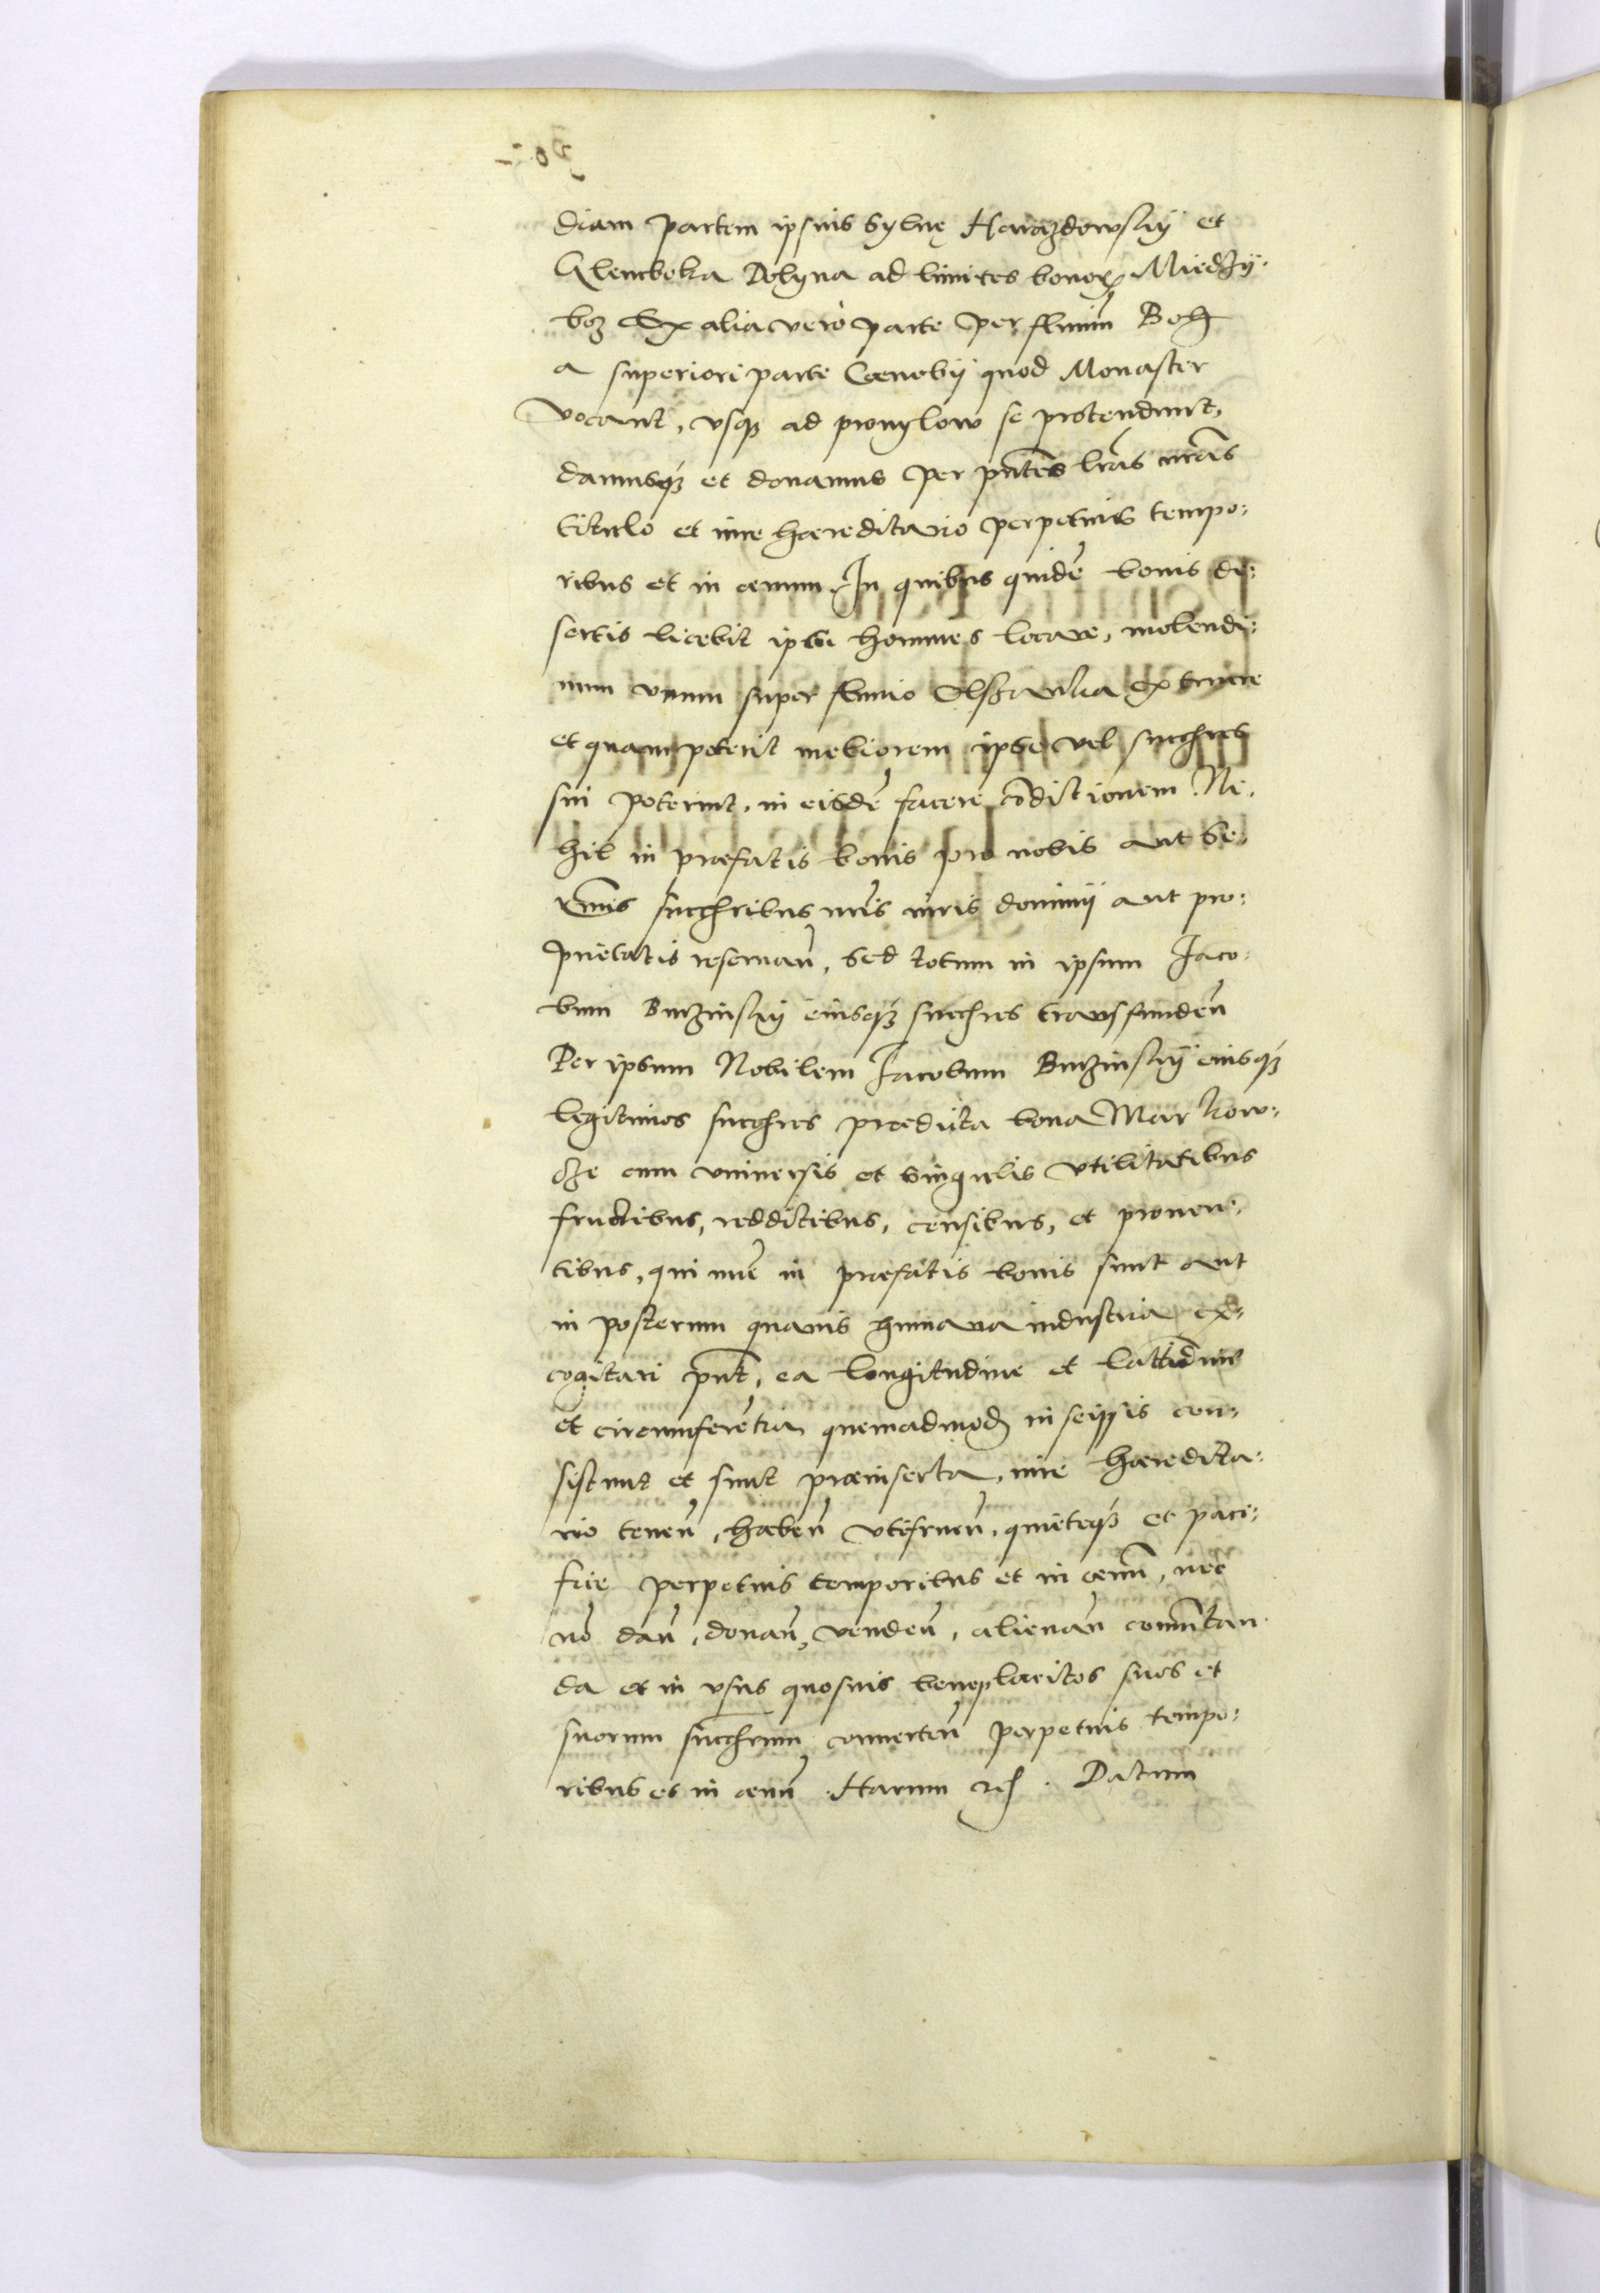 diam partem ipsius sylvę Harazdowskÿ et
Glemboka Dolyna ad limites bonorꝝ Miedzÿ-
boz Ex alia vero parte per fluuiũ Boh
a superiori parte Cœnobÿ quod Monaster
vocant, vsqꝫ ad pronylow se protendunt,
damusqꝫ et donamus per pñtes lras nras
titulo et iure hæreditario perpetuis tempo-
ribus et in æuum. In quibus quidẽ bonis de-
sertis licebit ipsi homines locare, molendi-
num vnum super fluuio extruere
et quam poterit meliorem ipse vel succhres
sui poterint, in eisdẽ facere cõdictionem. Ni-
hil in præfatis bonis pro nobis aut Se-
rmis succhribus nris iuris dominÿ aut pro-
prietatis reseruañ, sed totum in ipsum Jaco-
bum Buczinskÿ eiusqꝫ succhres transfundeñ
Per ipsum Nobilem Jacobum Buczinskÿ eiusqꝫ
legitimos succhres prædicta bona Markow-
cze cum vniuersis et singulis vtilitatibus
fructibus, redditibus, censibus, et prouen-
tibus, qui nũc in præfatis bonis sunt aut
in posterum quauis humana industria ex-
cogitari pñt, ea longitudine et lattitudine
et circumferẽtia quemadmodũ in seipsis con-
sistunt et sunt præinserta, iure hæredita-
rio teneñ, habeñ vtifrueñ, quieteqꝫ et paci-
fice perpetuis temporibus et in æuũ, nec
nõ dañ, donañ, vendeñ, alienañ comutan-
da et in vsus quosuis beneplacitos suos et
suorum succhrum conuerteñ perpetuis tempo-
ribus et in æuũ. Harum rc. Datum